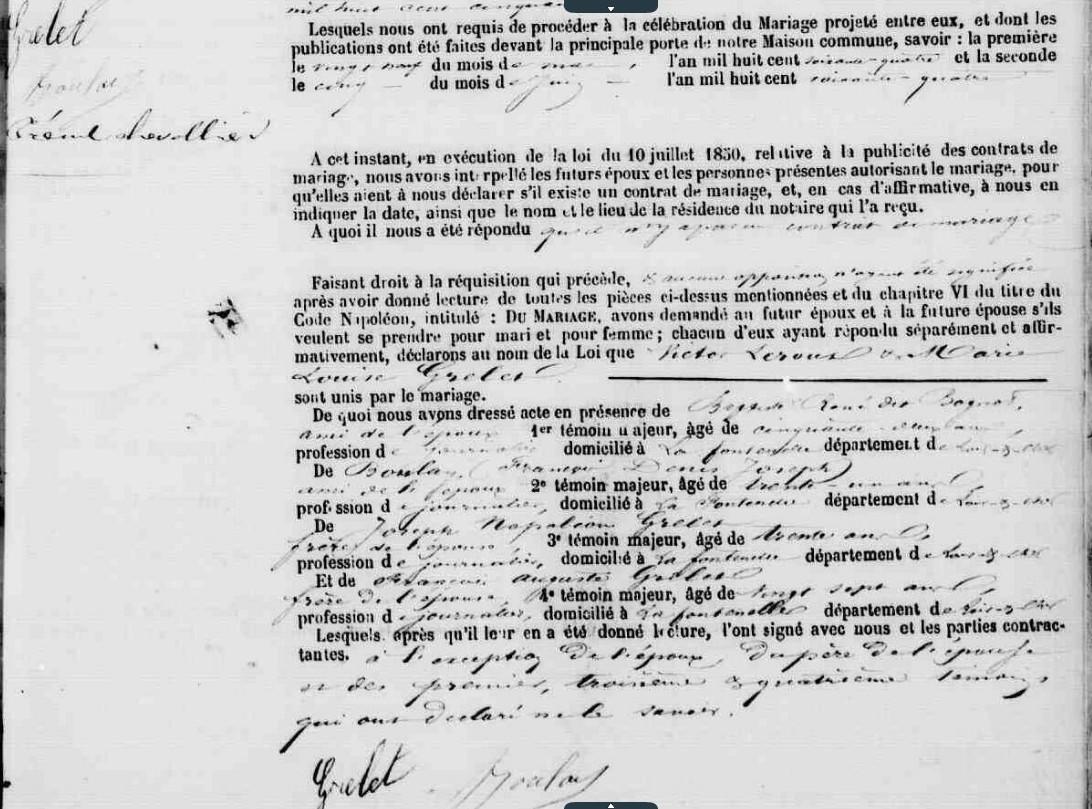 Grelet
Boulay
Crémel chevallier
mil huit cent cinquante
Lesquels nous ont requis de procéder à la célébration du Mariage projeté entre eux, et dont les
publications ont été faites devant la principale porte de notre Maison commune, savoir : la première
le vingt neuf du mois de mai, l'an mil huit cent soixante-quatre et la seconde
le cinq du mois de Juin l'an mil huit cent soixante-quatre
A cet instant, en exécution de la loi du 10 juillet 1850, relative à la publicité des contrats de
mariage, nous avons interpellé les futurs époux et les personnes présentes autorisant le mariage, pour
qu'elles aient à nous déclarer s'il existe un contrat de mariage, et, en cas d'affirmative, à nous en
indiquer la date, ainsi que le nom et le lieu de la résidence du notaire qui l'a reçu.
A quoi il nous a été répondu qu'il n'y a contrat de mariage
Faisant droit à la réquisition qui précède, & aucune opposition n'ayant été signifiée
après avoir donné lecture de toutes les pièces ci-dessus mentionnées et du chapitre VI du titre du
Code Napoléon, intitulé : DU MARIAGE, avons demandé au futur époux et à la future épouse s'ils
veulent se prendre pour mari et pour femme ; chacun d'eux ayant répondu séparément et affir-
mativement, déclarons au nom de la Loi que Victor Leroux & Marie
Louise Grelet
sont unis par le mariage.
De quoi nous avons dressé acte en présence de René
ami de l'époux 1er témoin majeur, âgé de cinquante ans,
profession de journalier domicilié à La fontenelle département de Loir-&-cher
De Boulay, (François Denis Joseph)
ami de l'époux 2e témoin majeur, âgé de trente-un ans,
profession de journalier, domicilié à La Fontenelle département de Loir-&-cher
De Joseph Napoléon Grelet
frère de l'épouse, 3e témoin majeur, âgé de trente ans,
profession de journalier, domicilié à La fontenelle département de Loir-&-cher
Et de François Auguste Grelet
frère de l'épouse, 4e témoin majeur, âgé de vingt sept ans,
profession de journalier, domicilié à La fontenelle département de Loir-&-cher
Lesquels, après qu'il leur en a été donné lecture, l'ont signé avec nous et les parties contrac-
tantes. à l'exception de l'époux, du père de l'épouse
et des premier, troisième & quatrième témoins
qui ont déclaré ne le savoir.
Grelet Boulay